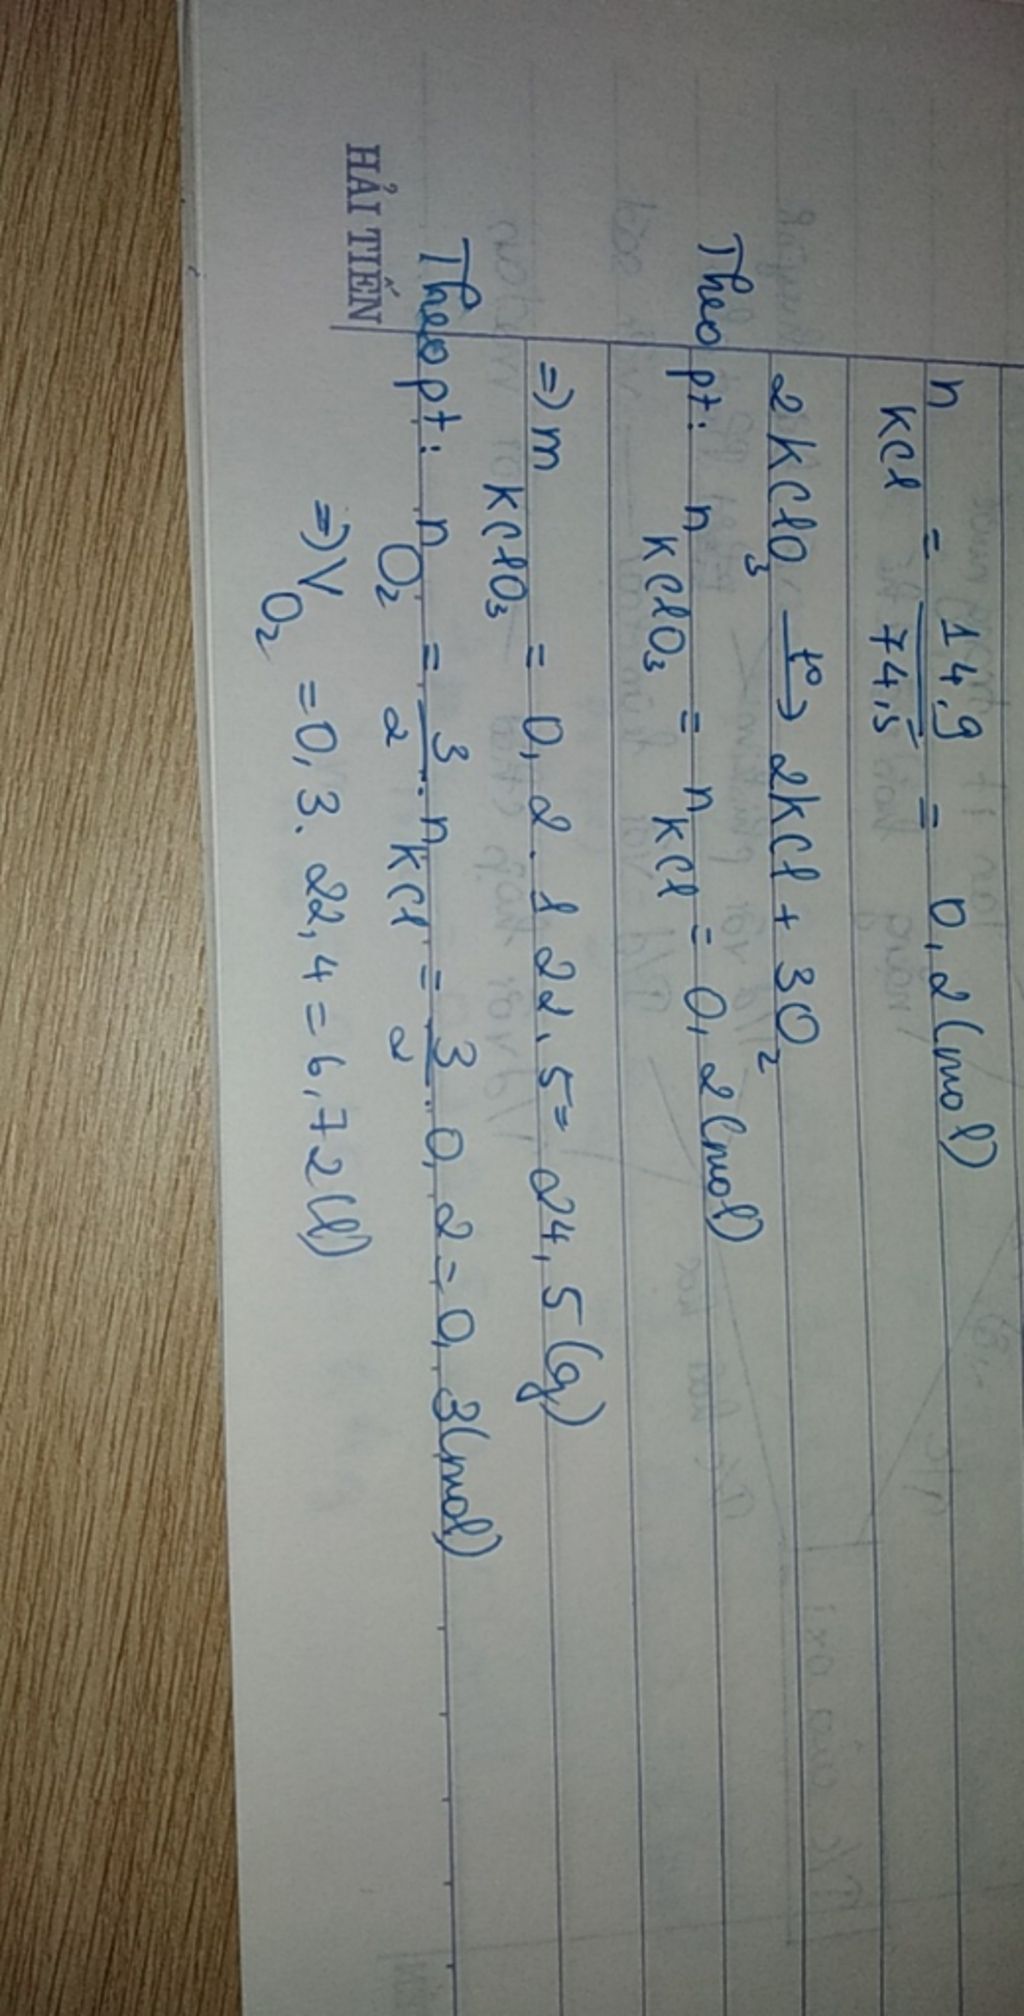 n KCl = 14,9 / 74,5 = 0,2 (mol)
2KClO3 t° → 2KCl + 3O2
Theo pt: n KClO3 = n KCl = 0,2 (mol)
=) m KClO3 = 0,2 . 122,5 = 24,5 (g)
Theo pt: n O2 = 3/2 . n KCl = 3/2 . 0,2 = 0,3 (mol)
=) V O2 = 0,3 . 22,4 = 6,72 (l)
HẢI TIẾN